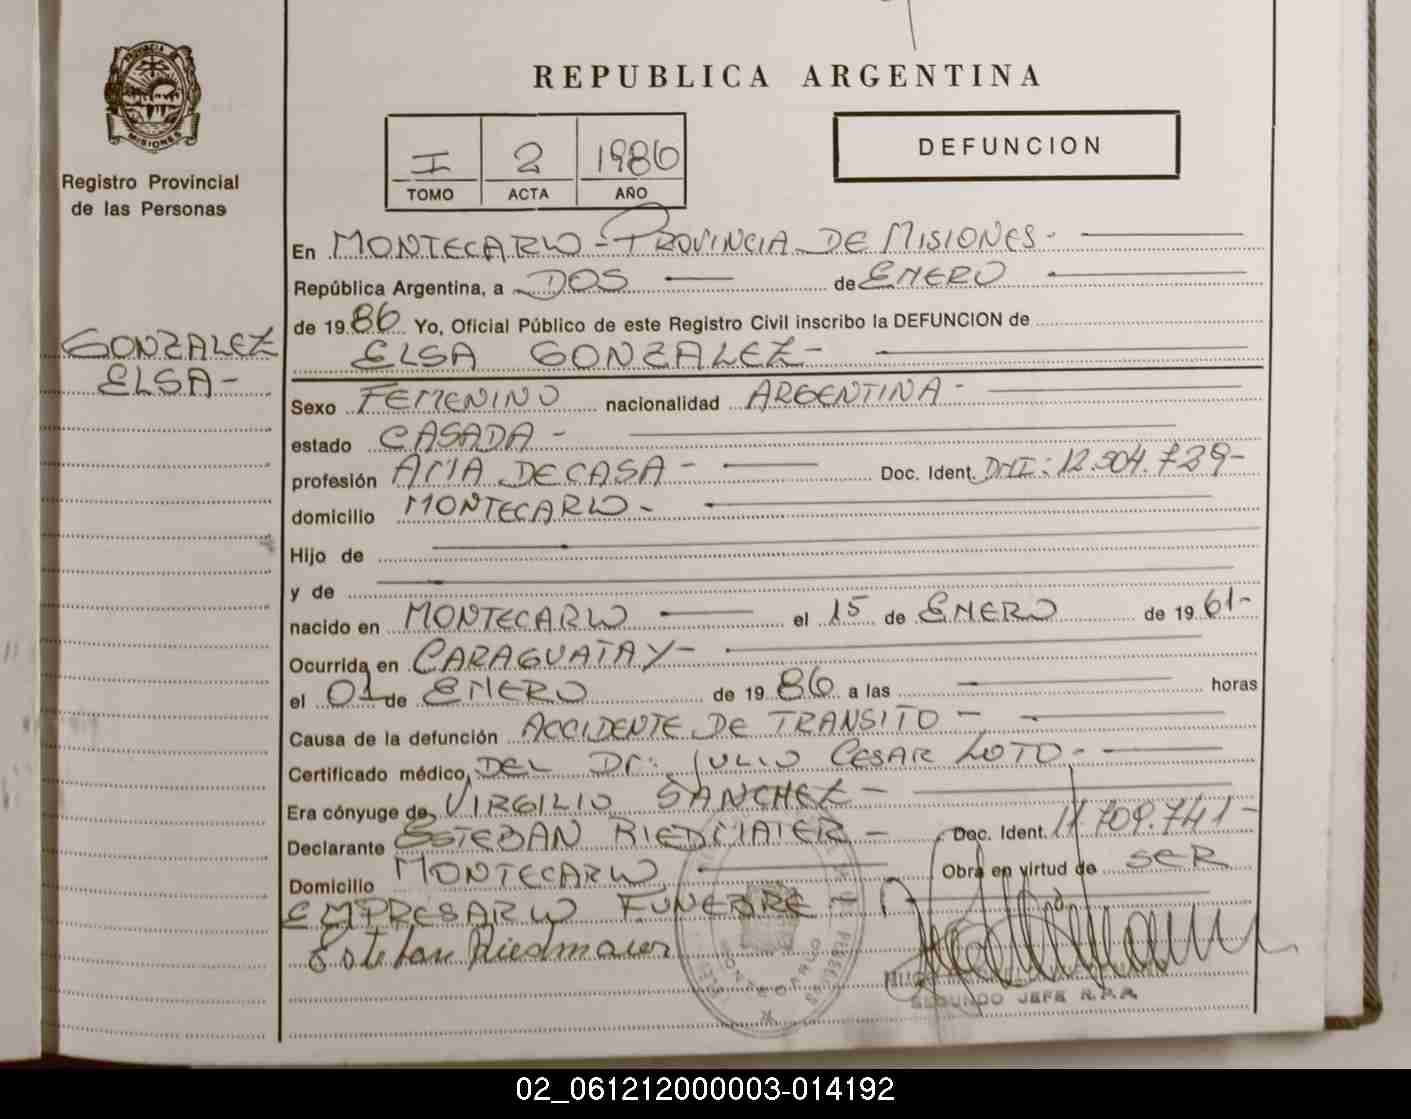 PROVINCIA DE
MISIONES
Registro Provincial
de las Personas
GONZALEZ
ELSA-
REPUBLICA ARGENTINA
I 2 1986
TOMO ACTA AÑO
DEFUNCION
En MONTECARLO - PROVINCIA DE MISIONES-
República Argentina, a DOS de ENERO
de 1986 Yo, Oficial Público de este Registro Civil inscribo la DEFUNCION de
ELSA GONZALEZ-
Sexo FEMENINO nacionalidad ARGENTINA-
estado CASADA-
profesión AMA DE CASA- Doc. Ident. DNI: 12.504.739-
domicilio MONTECARLO-
Hijo de
y de
nacido en MONTECARLO el 15 de ENERO de 1961-
Ocurrida en CARAGUATAY-
el 01 de ENERO de 1986 a las horas
Causa de la defunción ACCIDENTE DE TRANSITO-
Certificado médico, DEL Dr. JULIO CESAR LOTO-
Era cónyuge de, VIRGILIO SANCHEZ-
Declarante ESTEBAN RIEDMAIER- Doc. Ident. 11.709.741-
Domicilio MONTECARLO Obra en virtud de SER
EMPRESARIO FUNEBRE-
Esteban Riedmaier
MONTECARLO
SEGUNDO JEFE R.P.P.
02_061212000003-014192